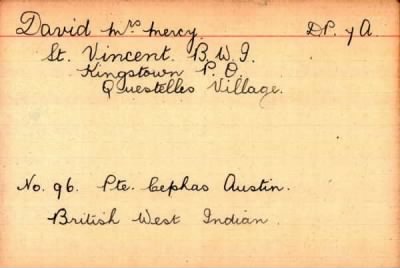 David Mrs Mercy. DP. y A.
St. Vincent. B.W.I.
Kingstown P.O.
Questelles Village.
No. 96. Pte. Cephas Austin.
British West Indian.